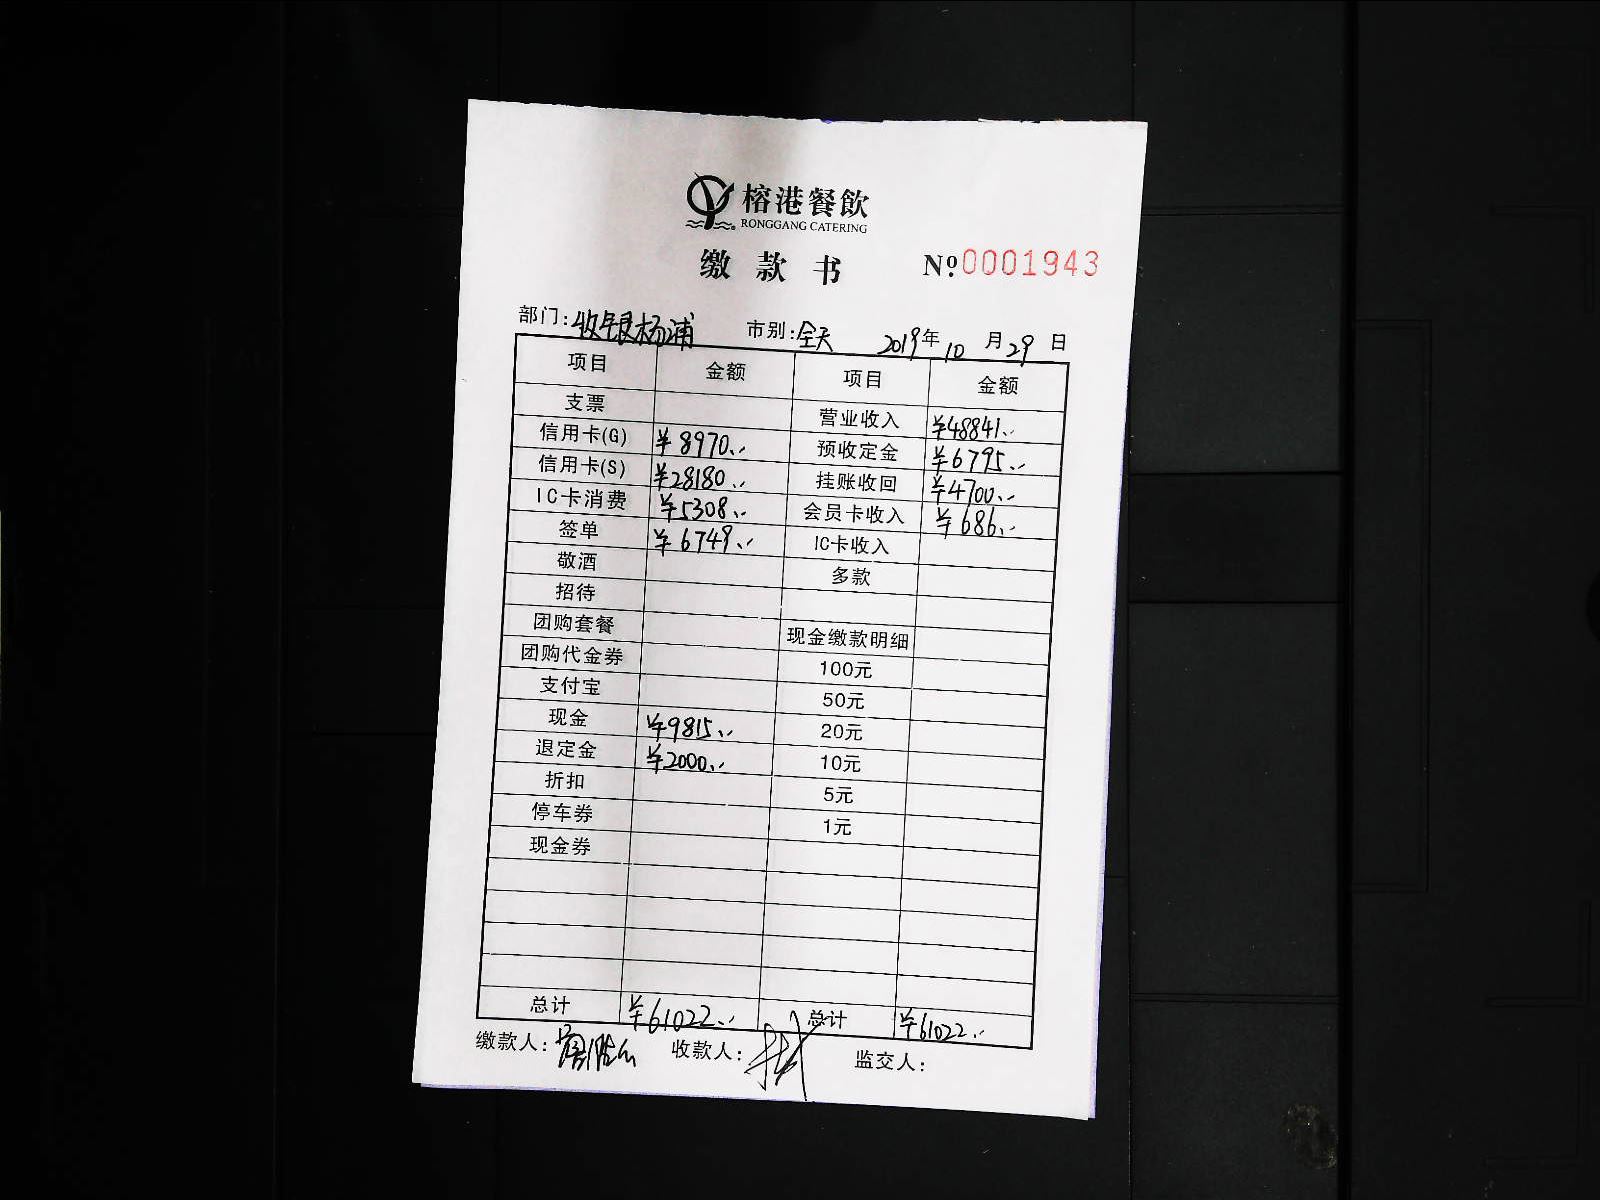 榕港餐飲
RONGGANG CATERING
缴款书 №:0001943
部门:收银杨浦 市别:全天 2019年10月29日
项目 金额 项目 金额
支票 营业收入 ¥48841.--
信用卡(G) ¥8970.-- 预收定金 ¥6795.--
信用卡(S) ¥28180.-- 挂账收回 ¥4700.--
IC卡消费 ¥5308.-- 会员卡收入 ¥686.--
签单 ¥6749.-- IC卡收入
敬酒 多款
招待
团购套餐 现金缴款明细
团购代金券 100元
支付宝 50元
现金 ¥9815.-- 20元
退定金 ¥2000.-- 10元
折扣 5元
停车券 1元
现金券
总计 ¥61022.-- 总计 ¥61022.--
缴款人: 收款人: 监交人: